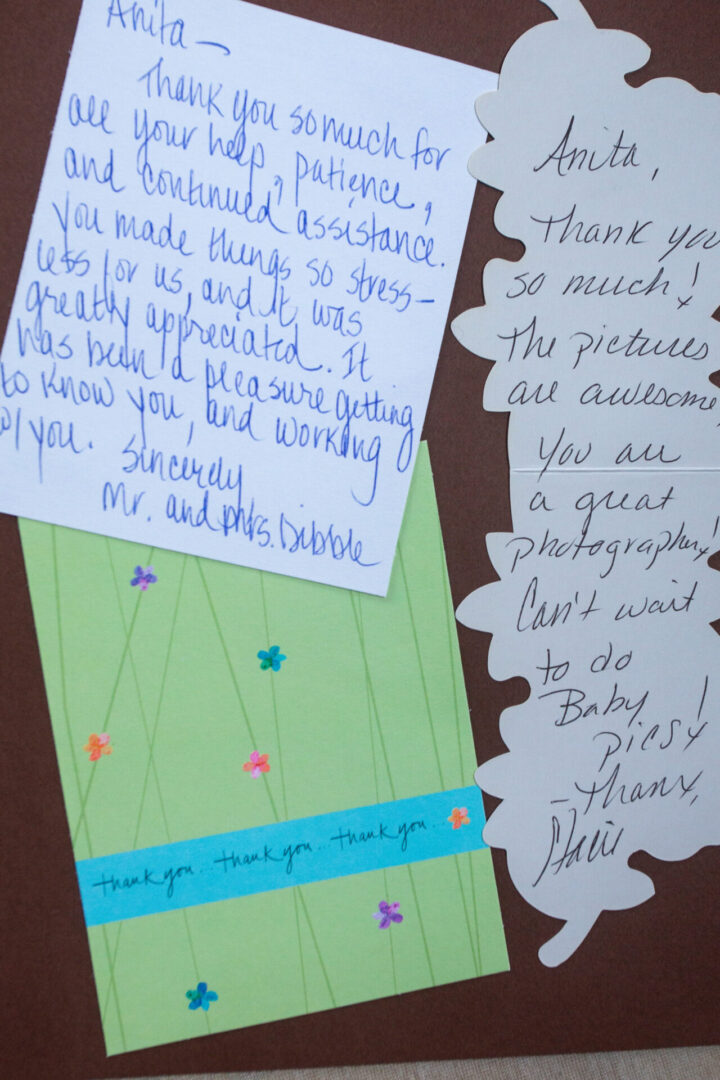 Anita —
Thank you so much for
all your help, patience,
and continued assistance.
You made things so stress-
less for us, and it was
greatly appreciated. It
has been a pleasure getting
to know you, and working
w/ you.
Sincerely
Mr. and Mrs. Dibble
thank you... thank you... thank you...
Anita,
Thank you
so much!
The pictures
are awesome,
you are
a great
photographer!
Can't wait
to do
Baby
pics!
- Thanx,
Stacie